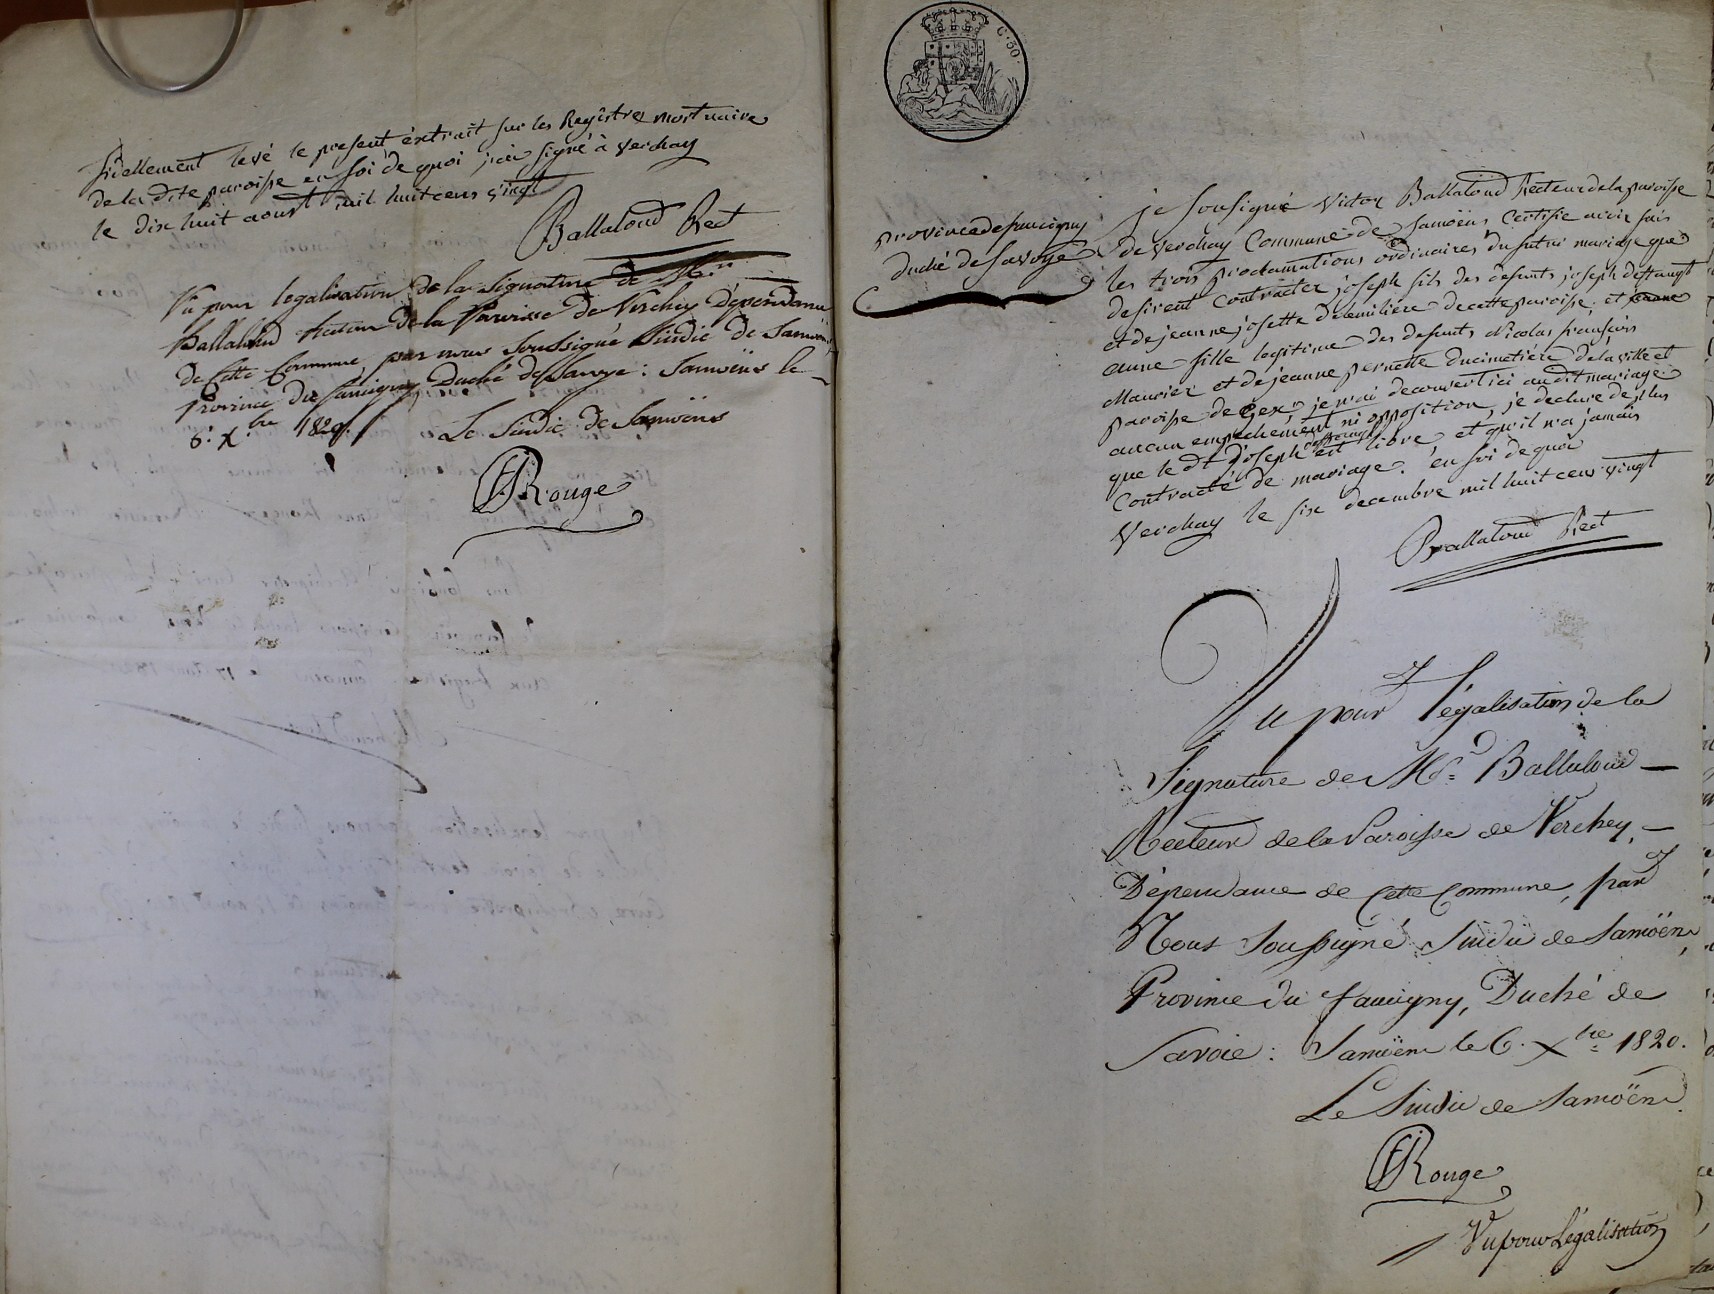 fidellement levé le present éxtrait sur les Registres mortuaire
de la dite paroisse en foi de quoi j'ai signé à verchay
le dix huit aoust mil huit cens vingt
Ballaloud Rect
Vu pour legalisation de la Signature de Mr
Ballaloud recteur de la Paroisse de Verchey Dépendance
de Cette Commune, par nous Soussigné Sindic de Samoëns
Province du faucigny Duché de Savoye : Samoëns le
6. Xbre 1820.
Le Sindic de Samoëns
Rouge
C. 50.
province de faucigny
duché de Savoye
je Sousigné Victor Ballaloud Recteur de la paroisse
de Verchay Commune de Samoëns Certifie avoir fais
les trois proclamations ordinaires du futur mariage que
desirent Contracter joseph fils des defunts joseph deffaugt
et de jeanne josette delemiliere de cette paroisse, et jeanne
anne fille legitime des defunts Nicolas françois
Maurier et de jeanne pernette ducimetiére de la ville et
paroisse de Gex, je n'ai decouvert ici au dit mariage
aucun empechement ni opposition, je declare de plus
que le dt joseph deffaugt est libre et qu'il n'a jamais
Contracté de mariage. en foi de quoi
Verchay le six decembre mil huit cens vingt
Ballaloud Rect
Vu pour légalisation de la
Signature de Mr. Ballaloud
Recteur de la Paroisse de Verchey,
Dépendance de Cette Commune, par
Nous Soussigné Sindic de Samoëns,
Province du faucigny, Duché de
Savoie : Samoëns le 6. Xbre 1820.
Le Sindic de Samoëns
Rouge
Vu pour Légalisation